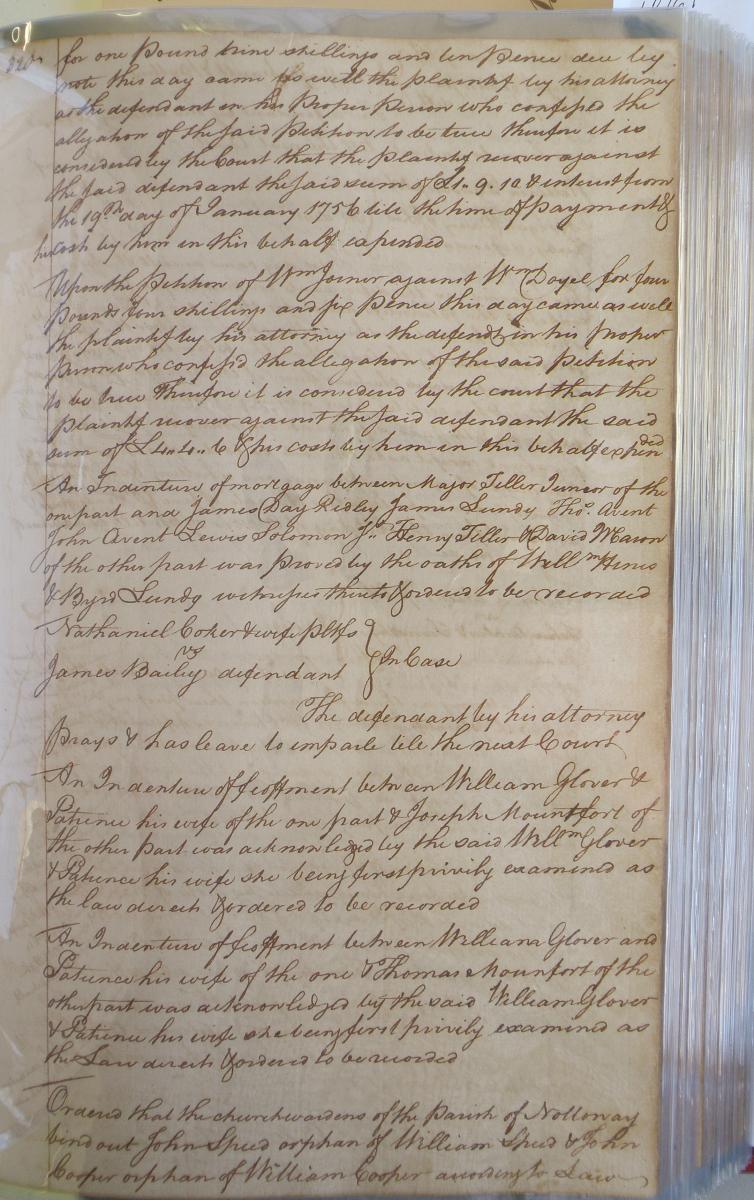 for one Pound nine shillings and ten Pence due by
note this day came as well the plaintif by his attorney
as the defendant in his Proper Person who confessed the
allegation of the said Petition to be true therefore it is
considered by the Court that the Plaintif recover against
the said defendant the said sum of £1.. 9. 10 & interest from
the 19th day of January 1756 till the time of payment &
his costs by him in this behalf expended
Upon the Petition of Wm Joiner against Wm Doyel for four
Pounds four shillings and six Pence this day came as well
the plaintif by his attorney as the defendt in his Proper
Person who confess'd the allegation of the said Petition
to be true Therefore it is considered by the court that the
Plaintif recover against the said defendant the said
sum of £4.. 4.. 6 & his costs by him in this behalf expended
An Indenture of mortgage between Major Tiller Junior of the
one part and James Day Ridley James Lundy Tho.s Avent
John Avent Lewis Solomon Jr. Henry Tiller & David Mason
of the other part was Proved by the oaths of Willm Hines
& Byrd Lundy witnesses thereto & ordered to be recorded
Nathaniel Coker & wife pltfs
vs
James Bailey defendant } In Case
The defendant by his attorney
Prays & has leave to imparle till the next Court
An Indenture of feoffment between William Glover &
Patience his wife of the one part & Joseph Mountfort of
the other Part was acknowledged by the said Willm Glover
& Patience his wife she being first privily examined as
the law directs & ordered to be recorded
An Indenture of feoffment between William Glover and
Patience his wife of the one & Thomas Mounfort of the
other part was acknowledged by the said William Glover
& Patience his wife she being first privily examined as
the Law directs & ordered to be recorded
Ordered that the churchwardens of the Parish of Nottoway
bind out John Speed orphan of William Speed & John
Cooper orphan of William Cooper according to Law